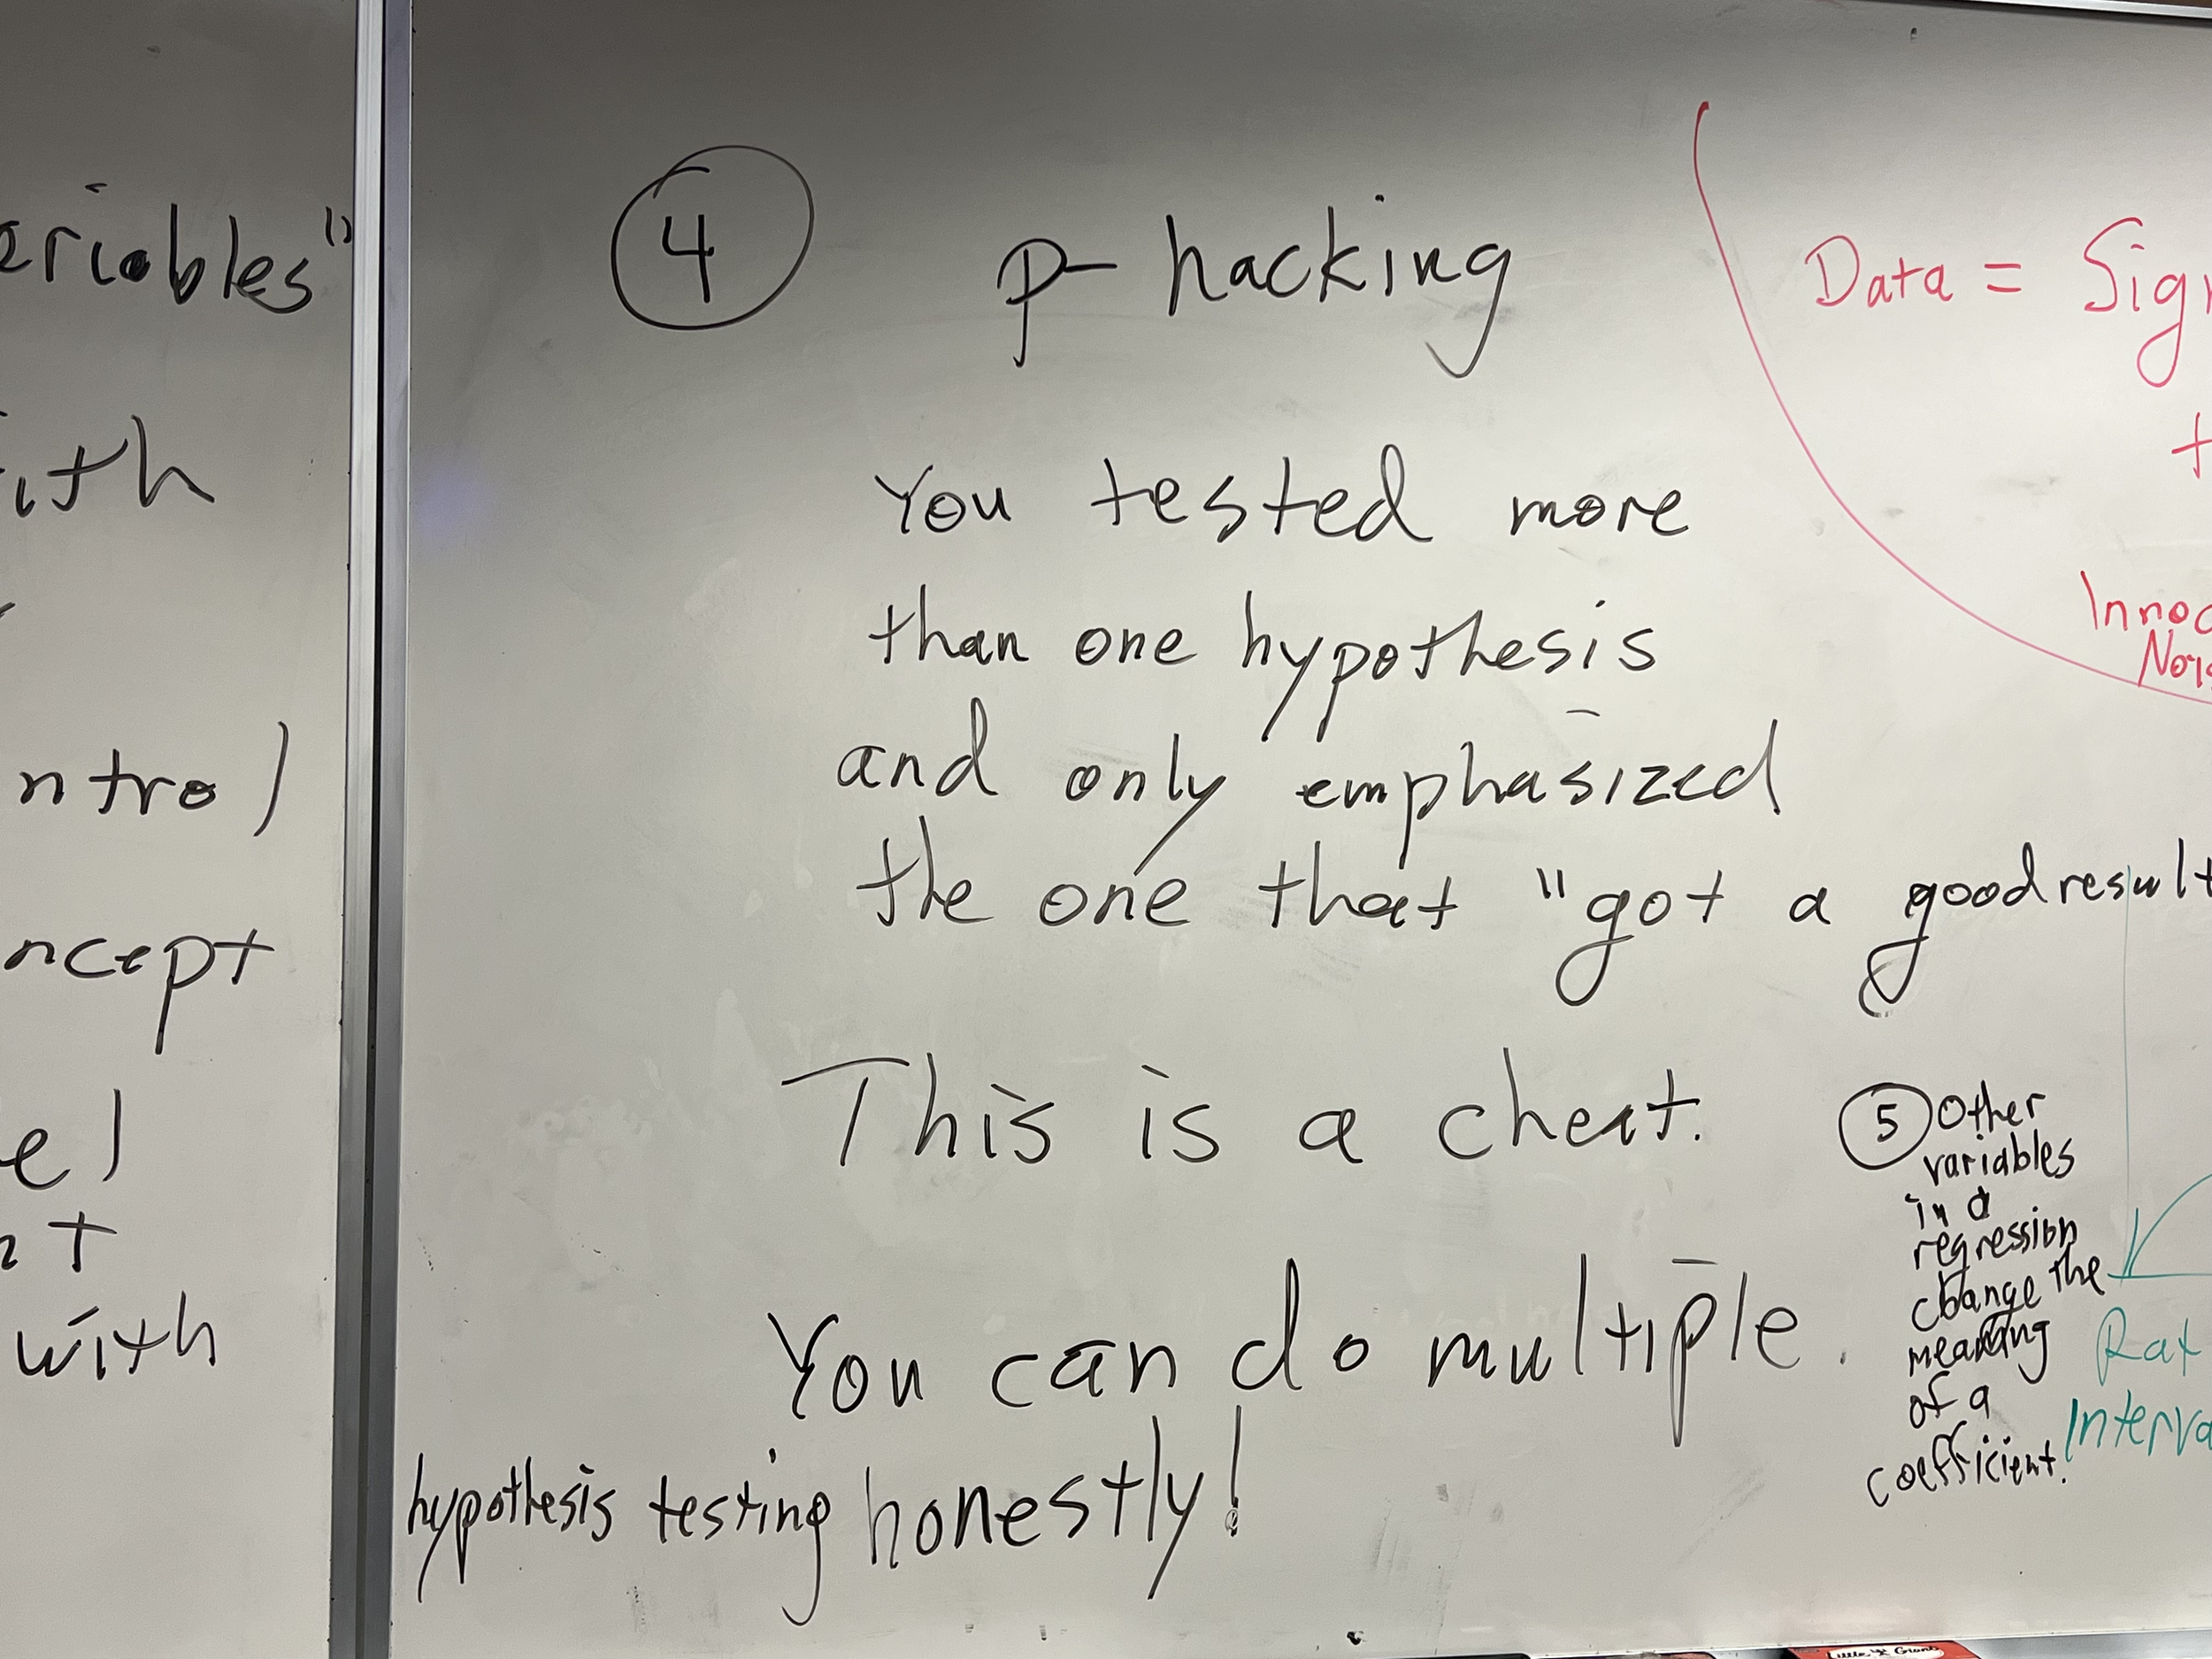 ariables"
ith
ntrol
ncept
el
nt
with
4 p- hacking
You tested more
than one hypothesis
and only emphasized
the one that "got a good result
This is a cheat.
You can do multiple
hypothesis testing honestly!
5 Other
variables
in a
regression
change the
meaning
of a
coefficient.
Data = Sig
+
Innoc
Nois
Rat
Interva